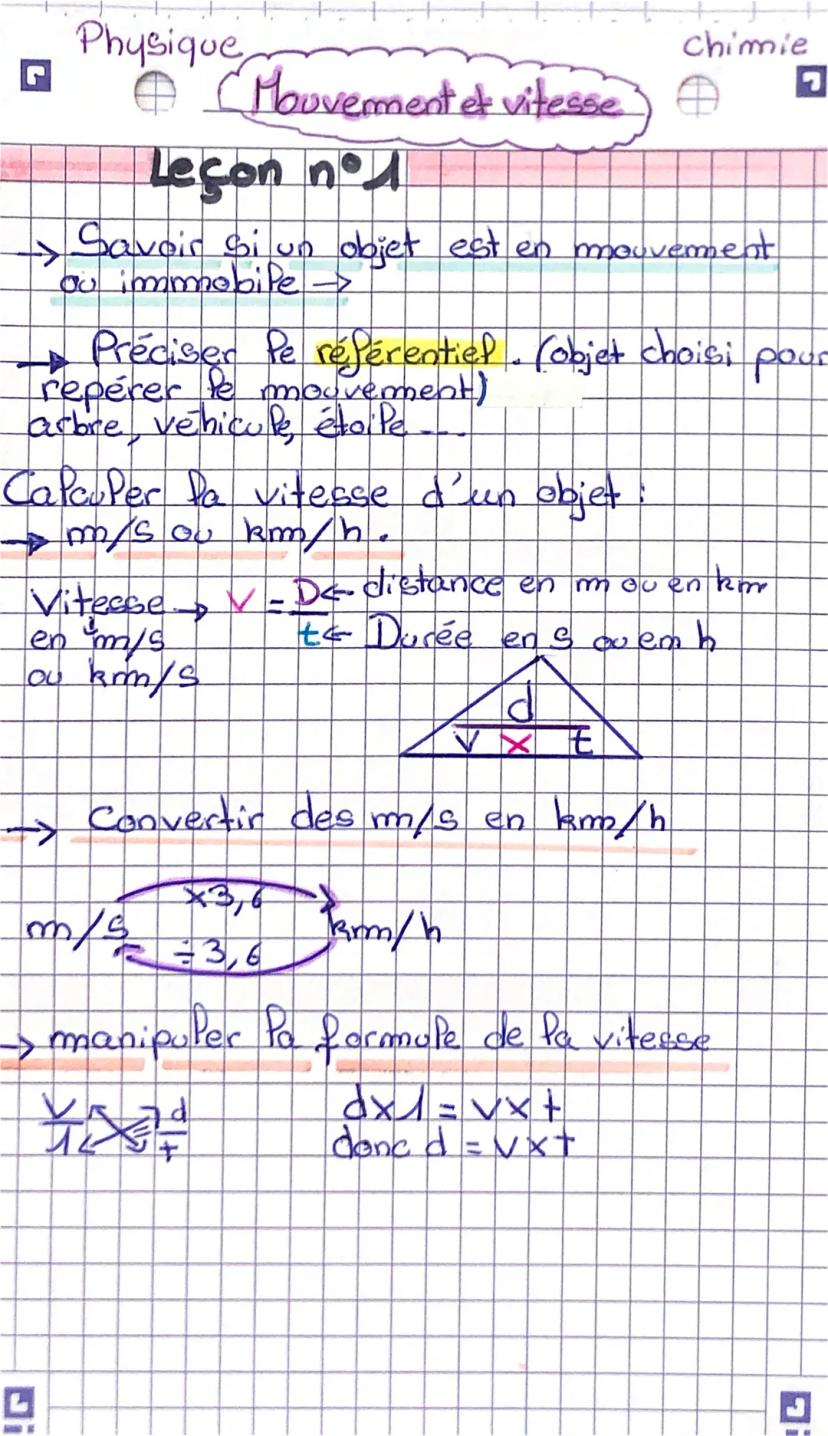 Physique
Chimie
Mouvement et vitesse
Leçon n°1
→ Savoir si un objet est en mouvement
ou immobile →
→ Préciser le référentiel. (objet choisi pour
repérer le mouvement)
arbre, véhicule, étoile ....
Calculer la vitesse d'un objet :
→ m/s ou km/h.
Vitesse → V = D ← distance en m ou en km
en m/s t ← Durée en s ou em h
ou km/s
d
v × t
→ Convertir des m/s en km/h
×3,6
m/s km/h
÷3,6
→ manipuler la formule de la vitesse
v d d×1 = v×t
1 t donc d = v×t